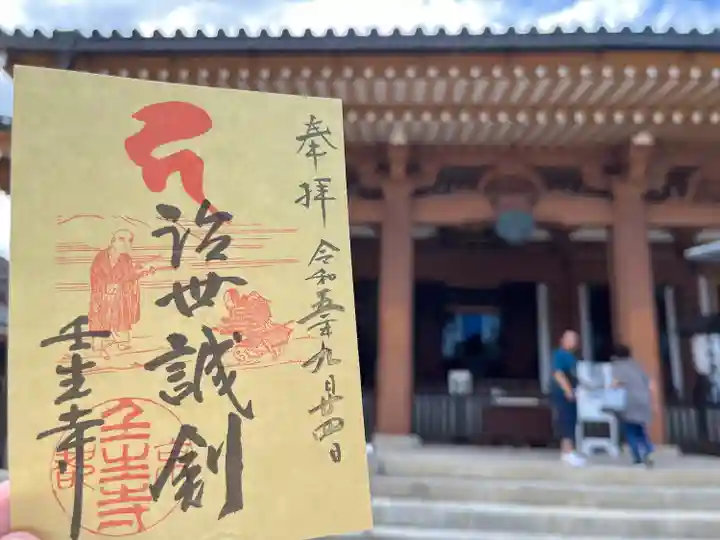 奉拝
令和五年九月廿四日
治世誠剣
壬生寺
壬生寺